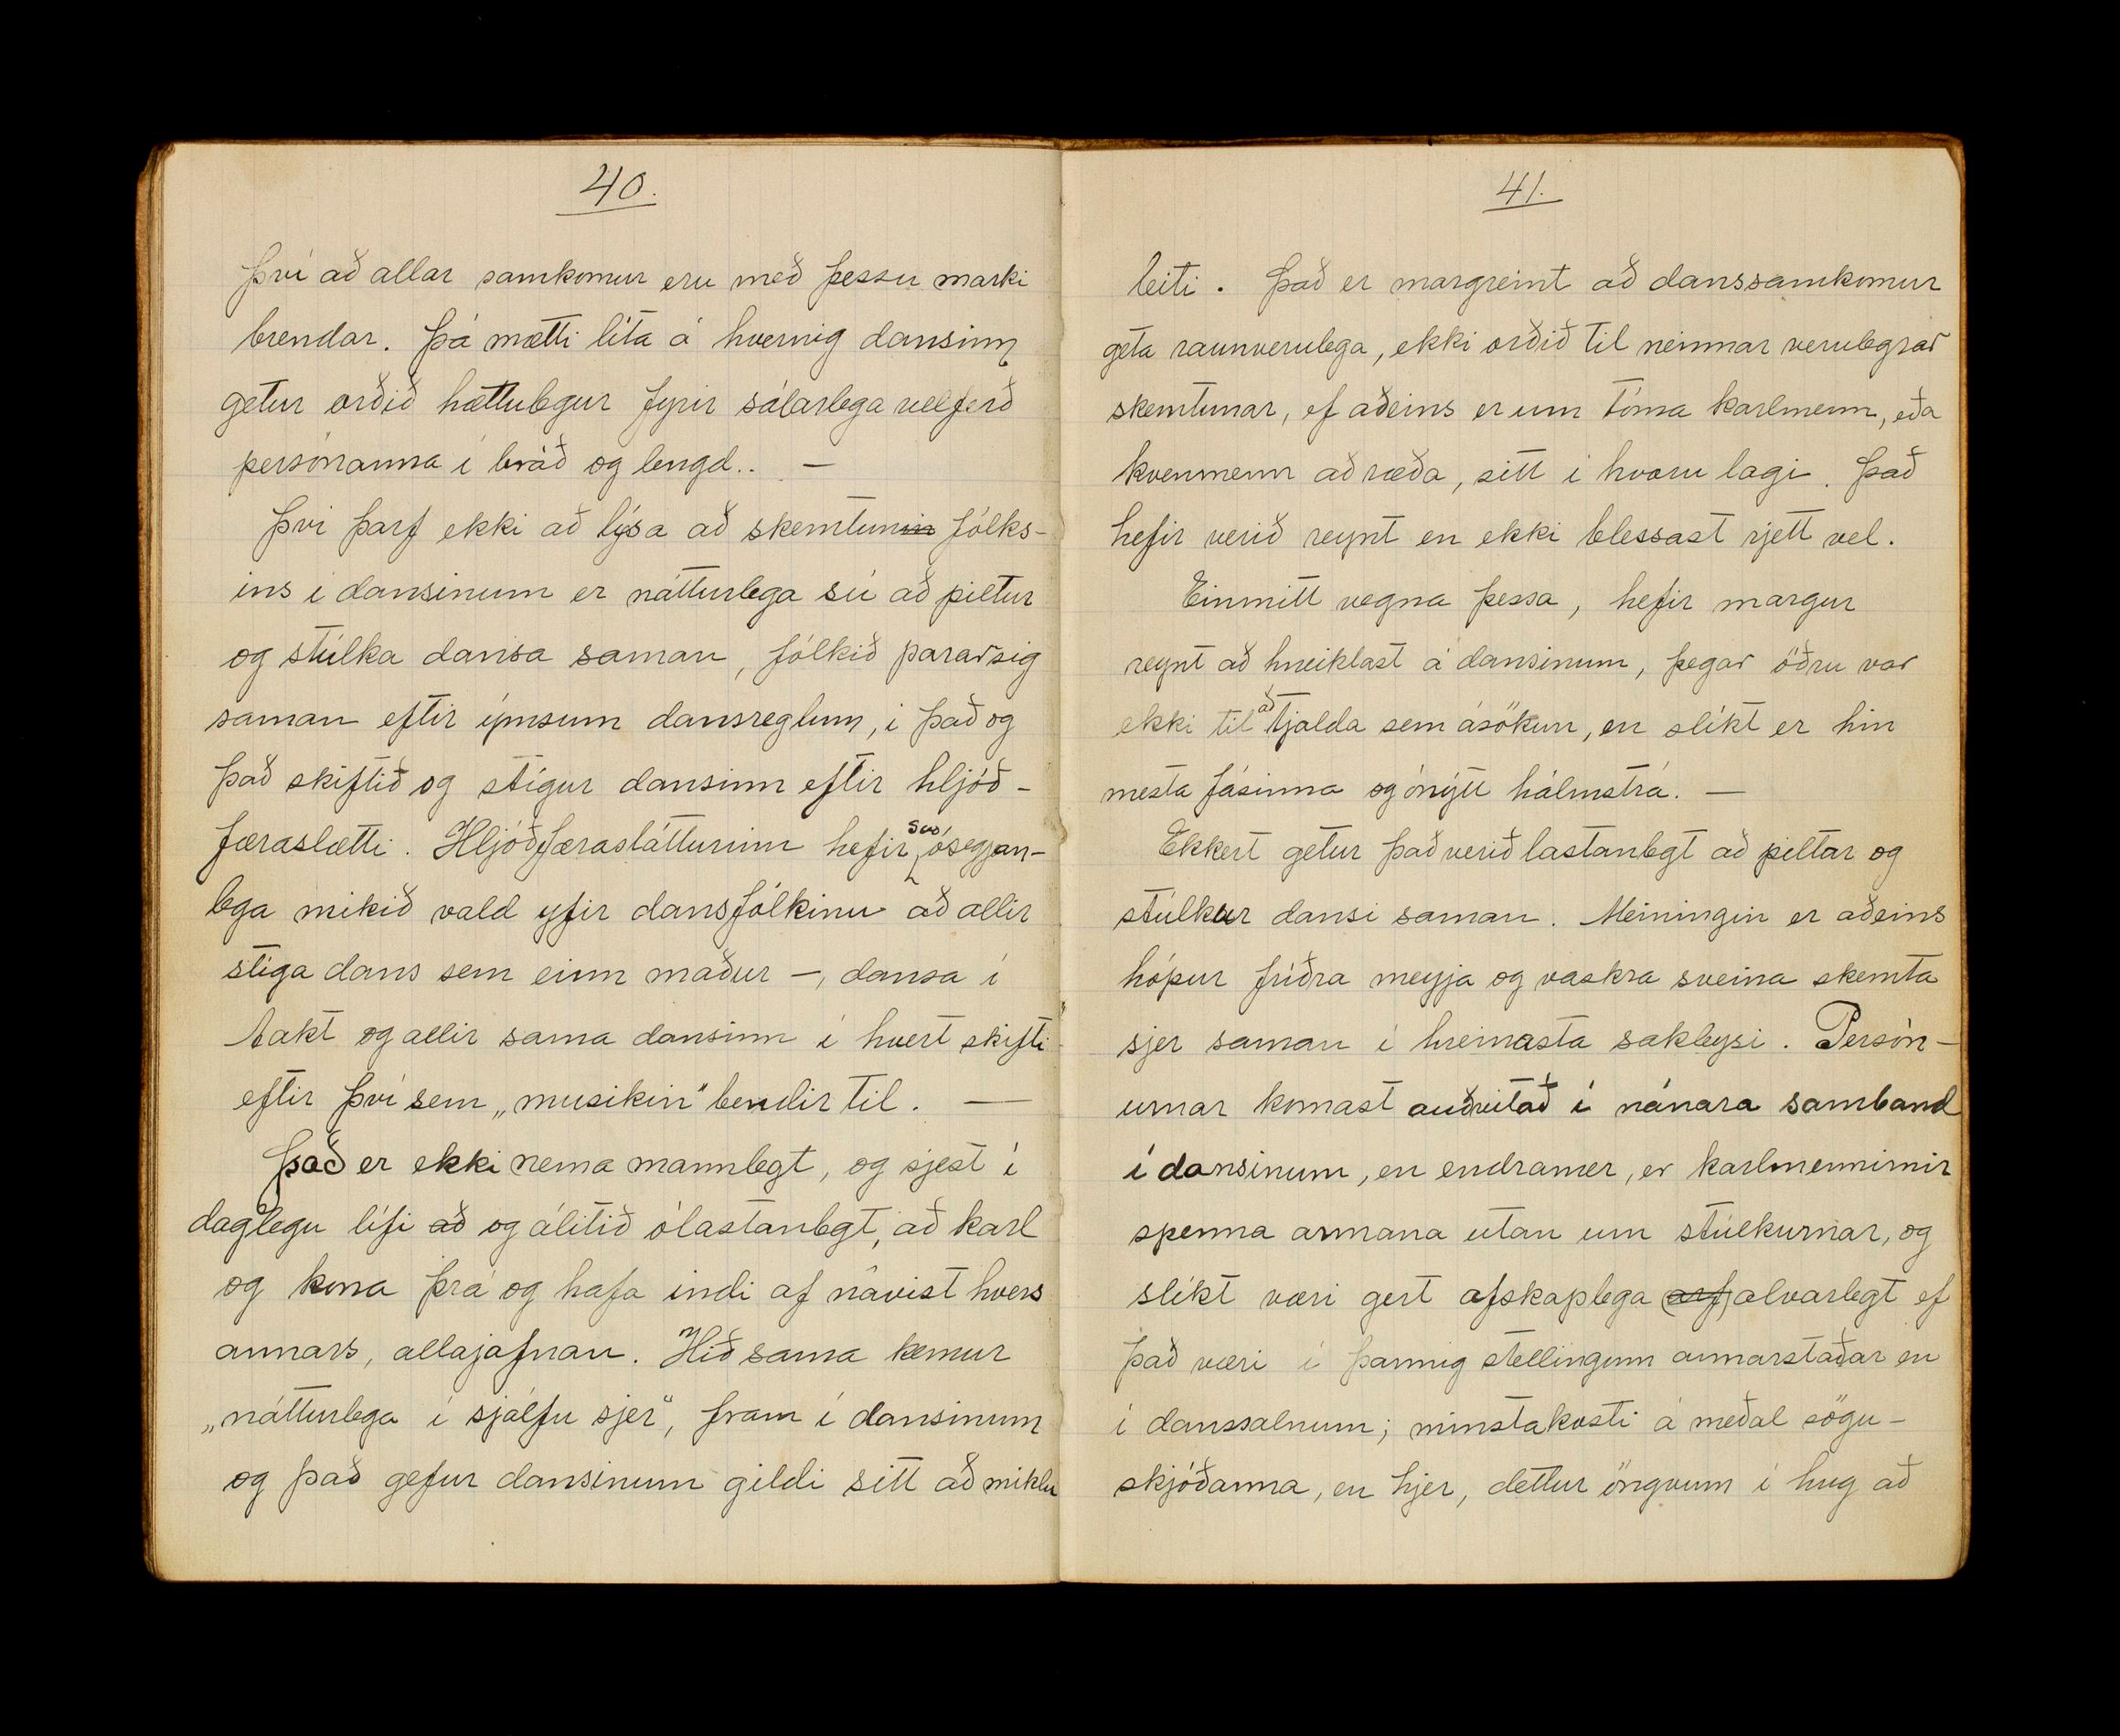 40.
því að allar samkomur eru með þessu marki
brendar. Þá mætti líta á hvernig dansinn
getur orðið hættulegur fyrir sálarlega velferð
persónanna í bráð og lengd.. —
Því þarf ekki að lýsa að skemtunin fólks-
ins í dansinum er nátturlega sú að piltur
og stúlka dansa saman, fólkið pararsig
saman eftir ýmsum dansreglum, í það og
það skiftið og stígur dansinn eftir hljóð-
færaslætti. Hljóðfæraslátturinn hefir svo ósegjan-
lega mikið vald yfir dansfólkinu að allir
stíga dans sem einn maður —, dansa í
takt og allir sama dansinn í hvert skifti
eftir því sem „musikin“ bendir til. —
Það er ekki nema mannlegt, og sjest í
daglegu lífi að og álitið ólastanlegt, að karl
og kona þrá og hafa indi af návist hvers
annars, allajafnan. Hið sama kemur
„nátturlega í sjálfu sjer“, fram í dansinum
og það gefur dansinum gildi sitt að miklu
41.
leiti. Það er margreint að danssamkomur
geta raunverulega, ekki orðið til neinnar verulegrar
skemtunar, ef aðeins er um tóma karlmenn, eða
kvenmenn að ræða, sitt í hvoru lagi. Það
hefir verið reynt en ekki blessast rjett vel.
Einmitt vegna þessa, hefir margur
reynt að hneiklast á dansinum, þegar öðru var
ekki til að tjalda sem ásökun, en slíkt er hin
mesta fásinna og ónýtt hálmstrá. —
Ekkert getur það verið lastanlegt að piltar og
stúlkur dansi saman. Meiningin er aðeins
hópur fríðra meyja og vaskra sveina skemta
sjer saman í hreinasta sakleysi. Persón-
urnar komast auðvitað í nánara samband
í dansinum, en endramer, er karlmennirnir
spenna armana utan um stúlkurnar, og
slíkt væri gert afskaplega arf alvarlegt ef
það væri í þannig stellingum annarstaðar en
í danssalnum; minstakosti á meðal sögu-
skjóðanna, en hjer, dettur öngvum í hug að